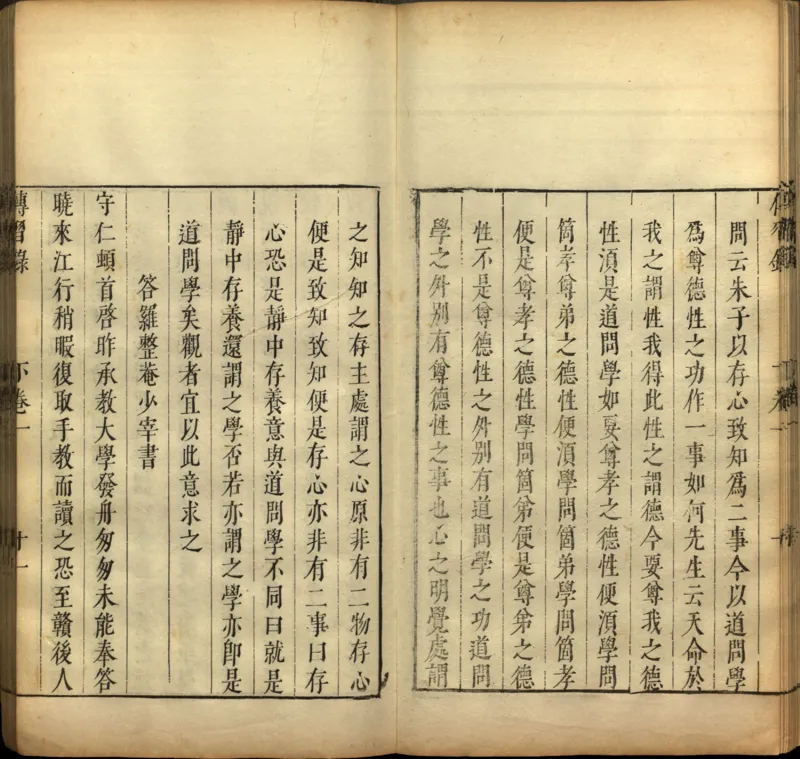 問云朱子以存心致知爲二事今以道問學
爲尊德性之功作一事如何先生云天命於
我之謂性我得此性之謂德今要尊我之德
性湏是道問學如要尊孝之德性便湏學問
箇孝尊弟之德性便湏學問箇弟學問箇孝
便是尊孝之德性學問箇弟便是尊弟之德
性不是尊德性之外別有道問學之功道問
學之外別有尊德性之事也心之明覺處謂
之知知之存主處謂之心原非有二物存心
便是致知致知便是存心亦非有二事曰存
心恐是靜中存養意與道問學不同曰就是
靜中存養還謂之學否若亦謂之學亦卽是
道問學矣觀者宜以此意求之
答羅整菴少宰書
守仁頓首啓昨承教大學發舟匆匆未能奉答
曉來江行稍暇復取手教而讀之恐至贛後人
傳習錄 下卷一 十一